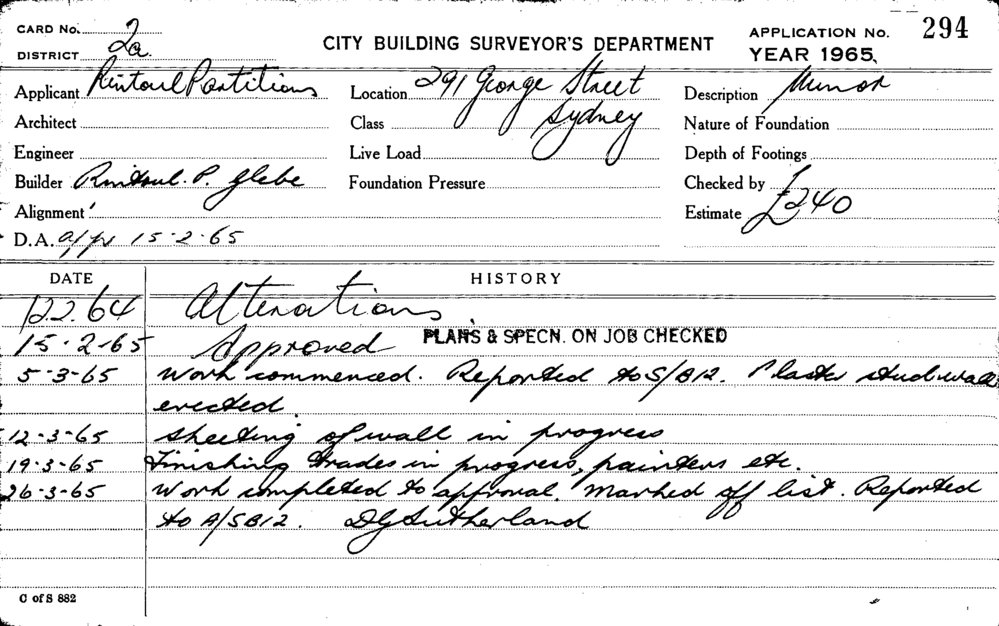 CARD No.
DISTRICT 2a
CITY BUILDING SURVEYOR'S DEPARTMENT
APPLICATION No. 294
YEAR 1965
Applicant Rintoul Partitions
Location 291 George Street
Sydney
Description Minor
Architect
Class
Nature of Foundation
Engineer
Live Load
Depth of Footings
Builder Rintoul. P. Glebe
Foundation Pressure
Checked by
Alignment
Estimate £240
D.A. app 15-2-65
DATE HISTORY
12.2.64 Alterations
15-2-65 Approved PLANS & SPECN. ON JOB CHECKED
5-3-65 Work commenced. Reported to S/B12. Plaster stud wall
erected.
12-3-65 Sheeting of wall in progress
19-3-65 Finishing trades in progress, painters etc.
26-3-65 Work completed to approval. Marked off list. Reported
to A/SB12. DG Sutherland
C of S 882